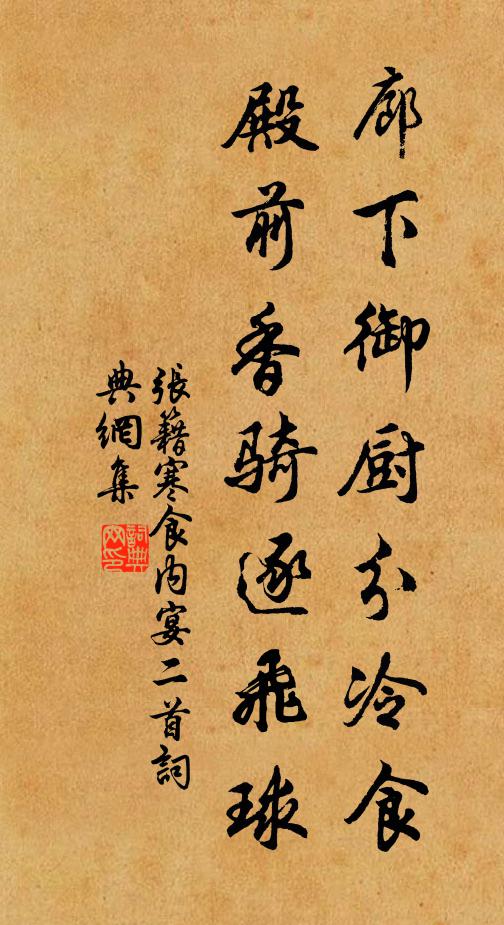 廊下御厨分冷食
殿前香騎逐飛球
張籍寒食内宴二首詞
典網集
詞典網印